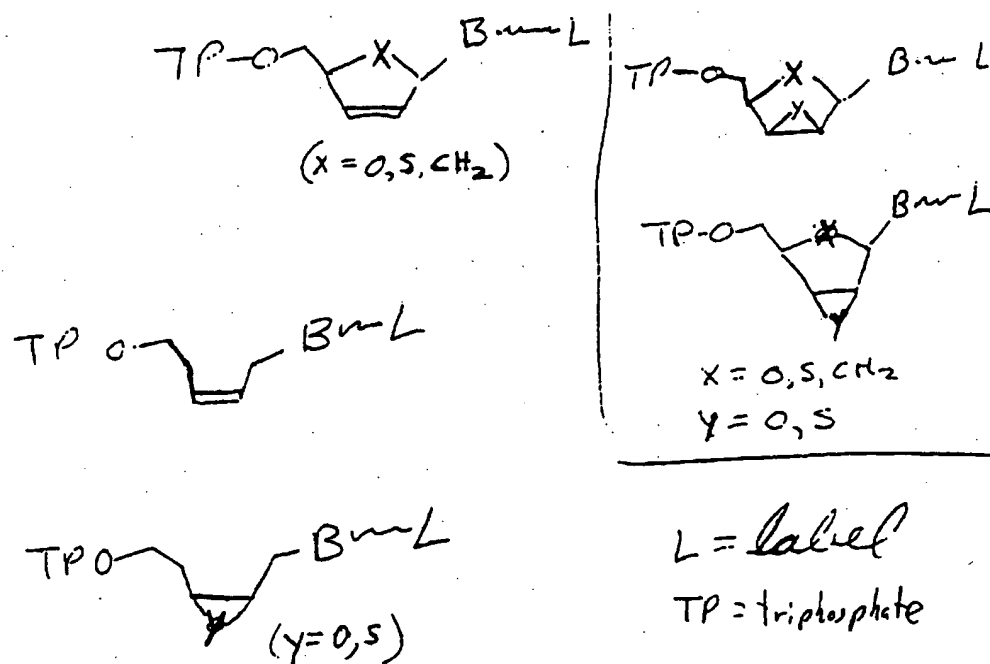 TP-O X B~L
(X = O, S, CH2)
TP O B~L
TPO Y B~L
(y = O, S)
TP-O X Y B~L
TP-O X Y B~L
X = O, S, CH2
Y = O, S
L = label
TP = triphosphate